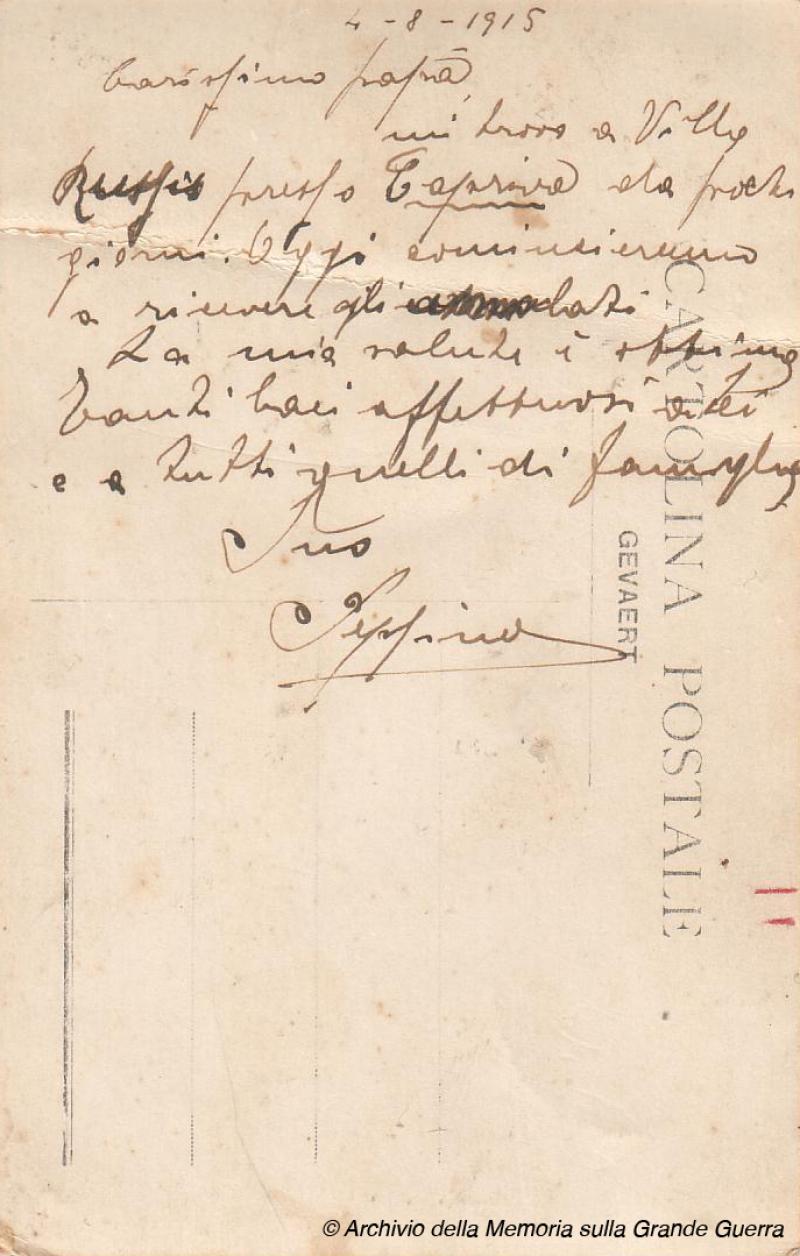 4-8-1915
Carissimo papà,
mi trovo a Villa
Russis presso Capriva da pochi
giorni. Oggi comincieremo
a ricevere gli ammalati
La mia salute è ottima
Tanti baci affettuosi a tei
e a tutti quelli di famiglia
Tuo
Peppino
CARTOLINA POSTALE
GEVAERT
© Archivio della Memoria sulla Grande Guerra